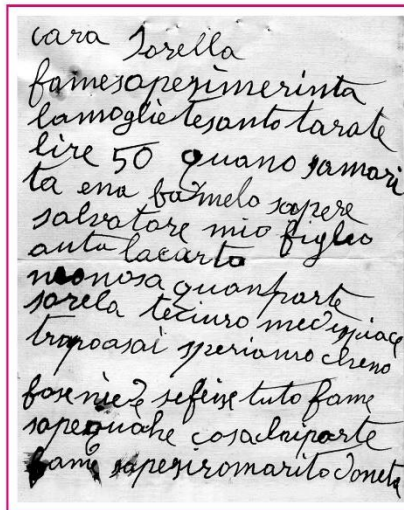 cara Sorella
famesaperimerinta
lamoglietesantotarate
lire 50 quano samari
ta ena farmelo sapere
salvatore mio figleo
auta lacarta
nonosa quanparte
sorela teciuro medispiace
tropoasai speriamo cheno
fose nied sefeise tuto fame
sapequahe cosachiparte
fame sapesiromaritodoneta